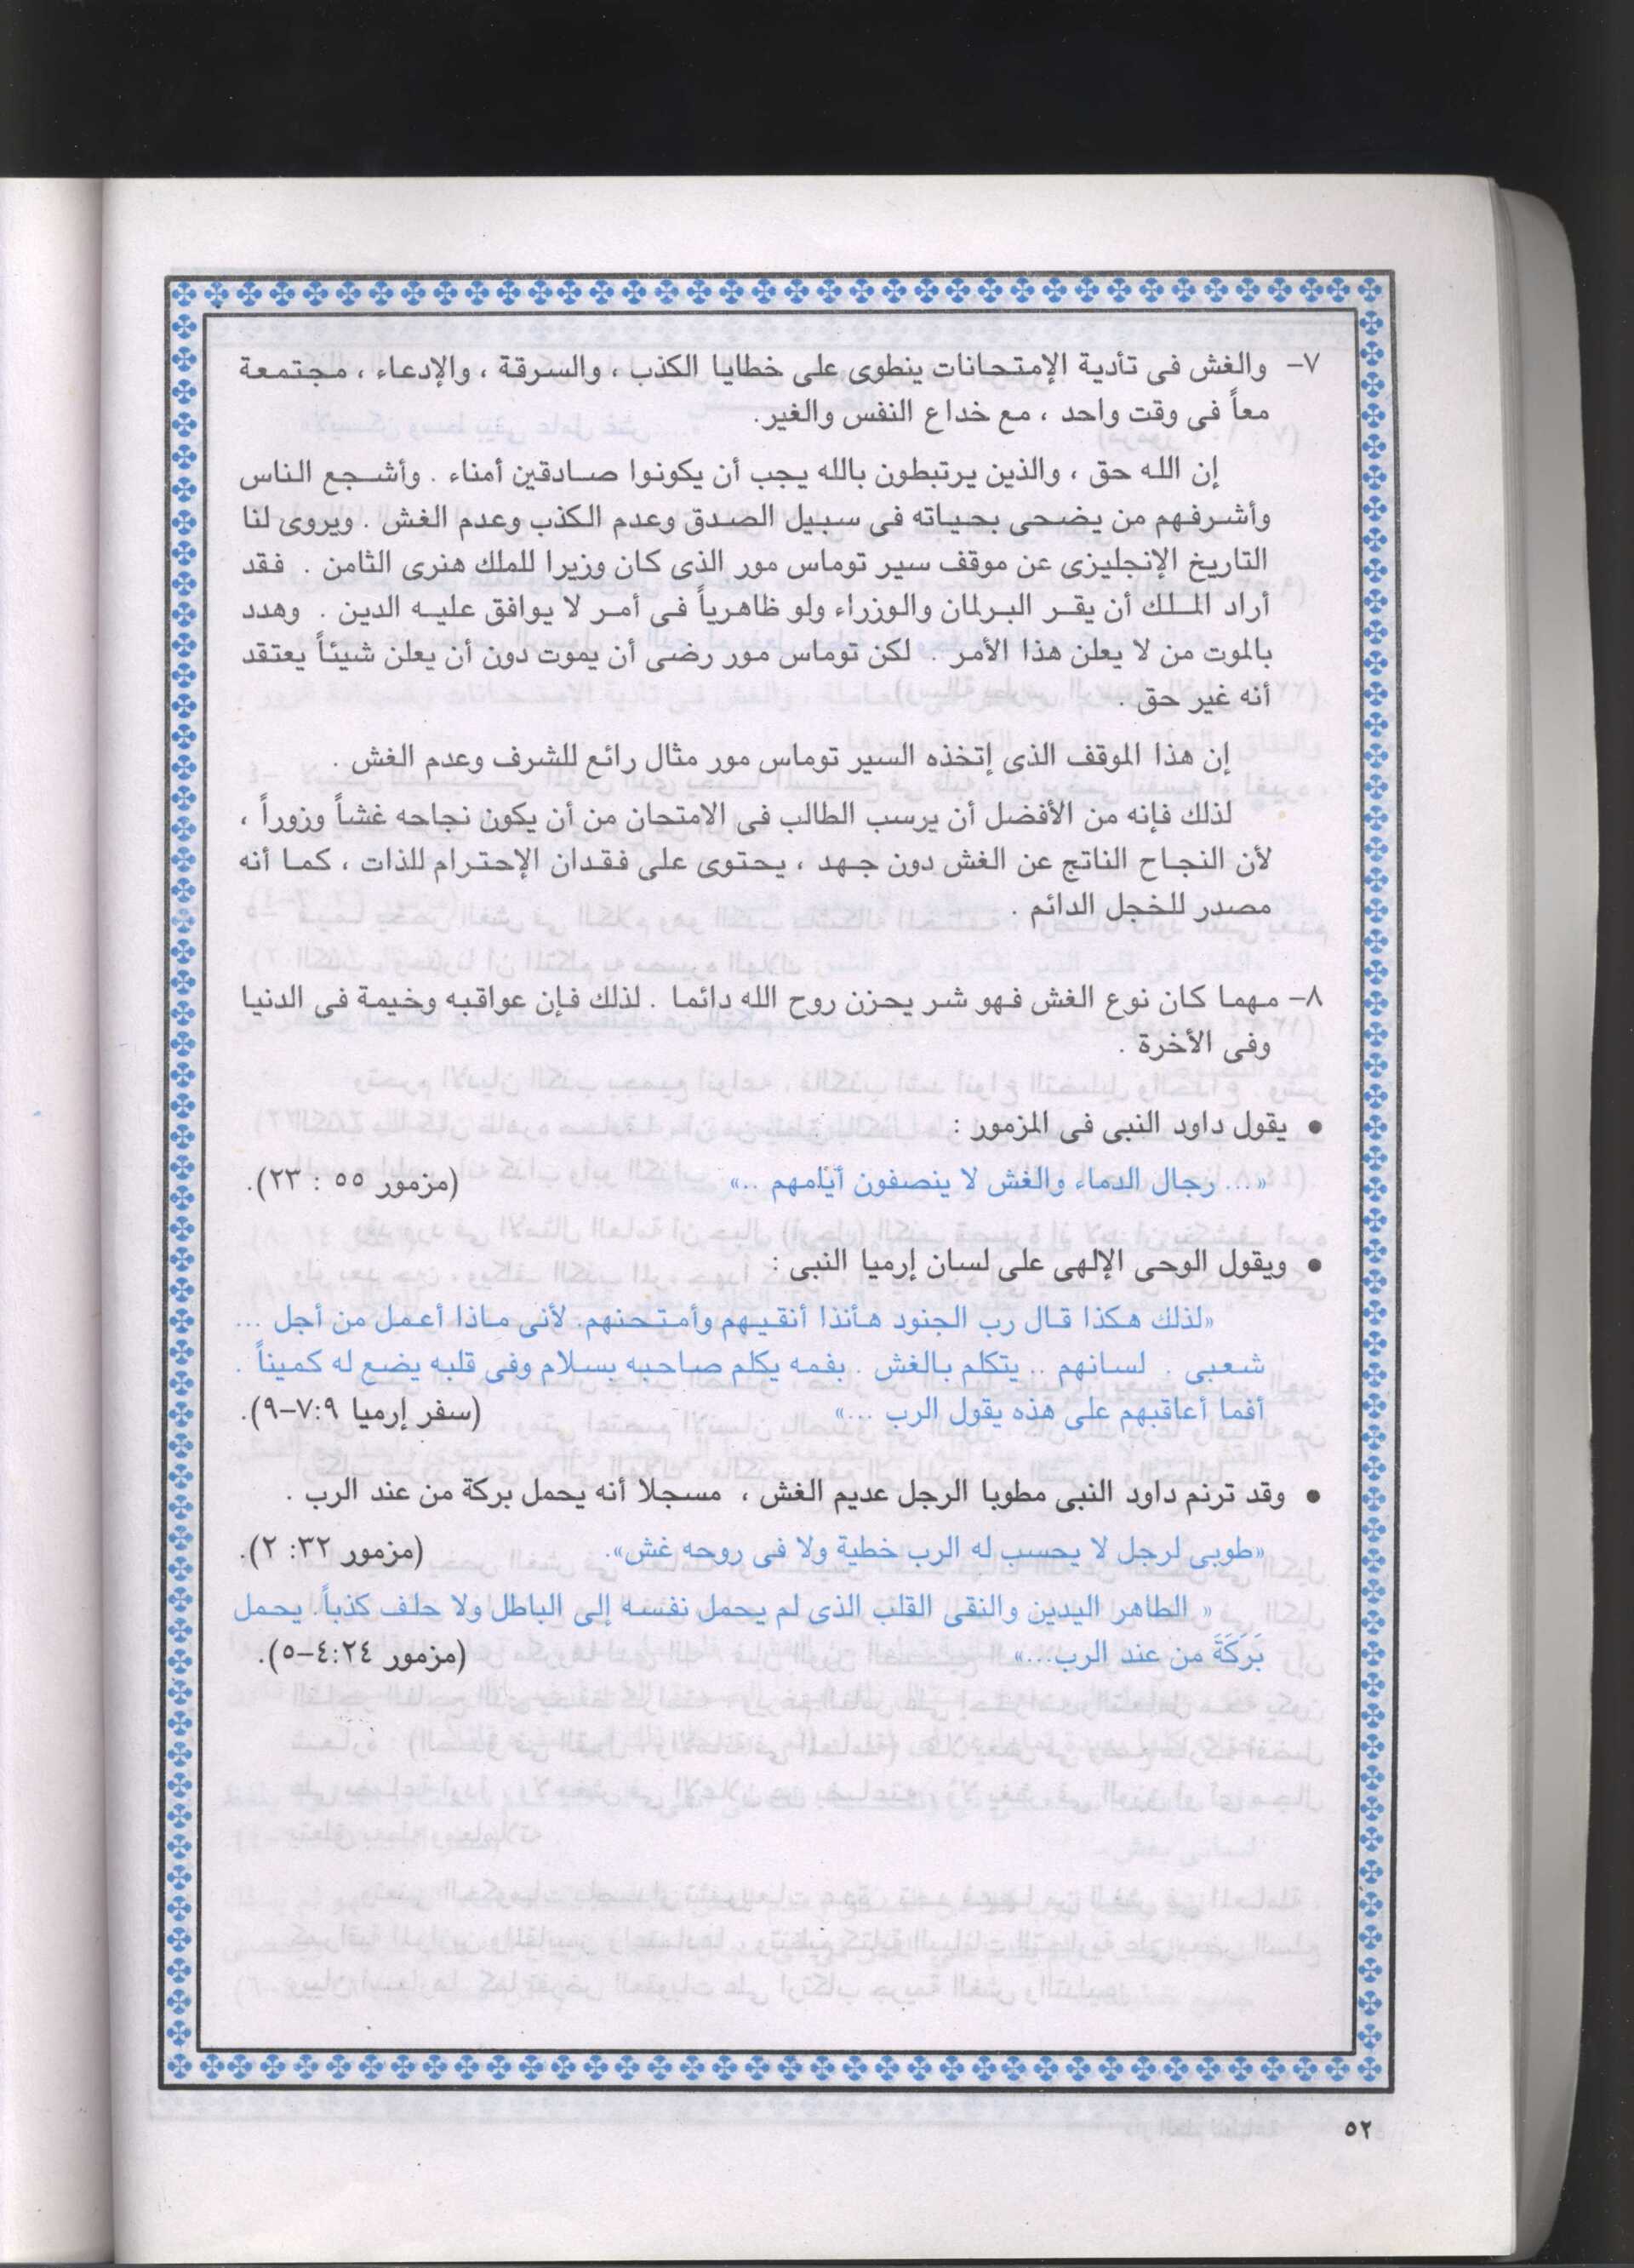 ٧- والغش فى تأدية الإمتحانات ينطوى على خطايا الكذب ، والسرقة ، والإدعاء ، مجتمعة
معاً فى وقت واحد ، مع خداع النفس والغير.
إن الله حق ، والذين يرتبطون بالله يجب أن يكونوا صادقين أمناء . وأشجع الناس
وأشرفهم من يضحى بحياته فى سبيل الصدق وعدم الكذب وعدم الغش . ويروى لنا
التاريخ الإنجليزى عن موقف سير توماس مور الذى كان وزيرا للملك هنرى الثامن . فقد
أراد الملك أن يقر البرلمان والوزراء ولو ظاهرياً فى أمر لا يوافق عليه الدين . وهدد
بالموت من لا يعلن هذا الأمر . لكن توماس مور رضى أن يموت دون أن يعلن شيئاً يعتقد
أنه غير حق .
إن هذا الموقف الذى إتخذه السير توماس مور مثال رائع للشرف وعدم الغش .
لذلك فإنه من الأفضل أن يرسب الطالب فى الامتحان من أن يكون نجاحه غشاً وزوراً ،
لأن النجاح الناتج عن الغش دون جهد ، يحتوى على فقدان الإحترام للذات ، كما أنه
مصدر للخجل الدائم .
٨- مهما كان نوع الغش فهو شر يحزن روح الله دائما . لذلك فإن عواقبه وخيمة فى الدنيا
وفى الأخرة .
• يقول داود النبى فى المزمور :
«... رجال الدماء والغش لا ينصفون أيامهم ..» (مزمور ٥٥ : ٢٣).
• ويقول الوحى الإلهى على لسان إرميا النبى :
«لذلك هكذا قال رب الجنود هأنذا أنقيهم وأمتحنهم. لأنى ماذا أعمل من أجل ...
شعبى . لسانهم .. يتكلم بالغش . بفمه يكلم صاحبه بسلام وفى قلبه يضع له كميناً .
أفما أعاقبهم على هذه يقول الرب ...» (سفر إرميا ٧:٩-٩).
• وقد ترنم داود النبى مطوبا الرجل عديم الغش ، مسجلا أنه يحمل بركة من عند الرب .
«طوبى لرجل لا يحسب له الرب خطية ولا فى روحه غش». (مزمور ٣٢: ٢).
« الطاهر اليدين والنقى القلب الذى لم يحمل نفسه إلى الباطل ولا حلف كذباً. يحمل
بَرَكَةً من عند الرب...» (مزمور ٤:٢٤-٥).
٥٢